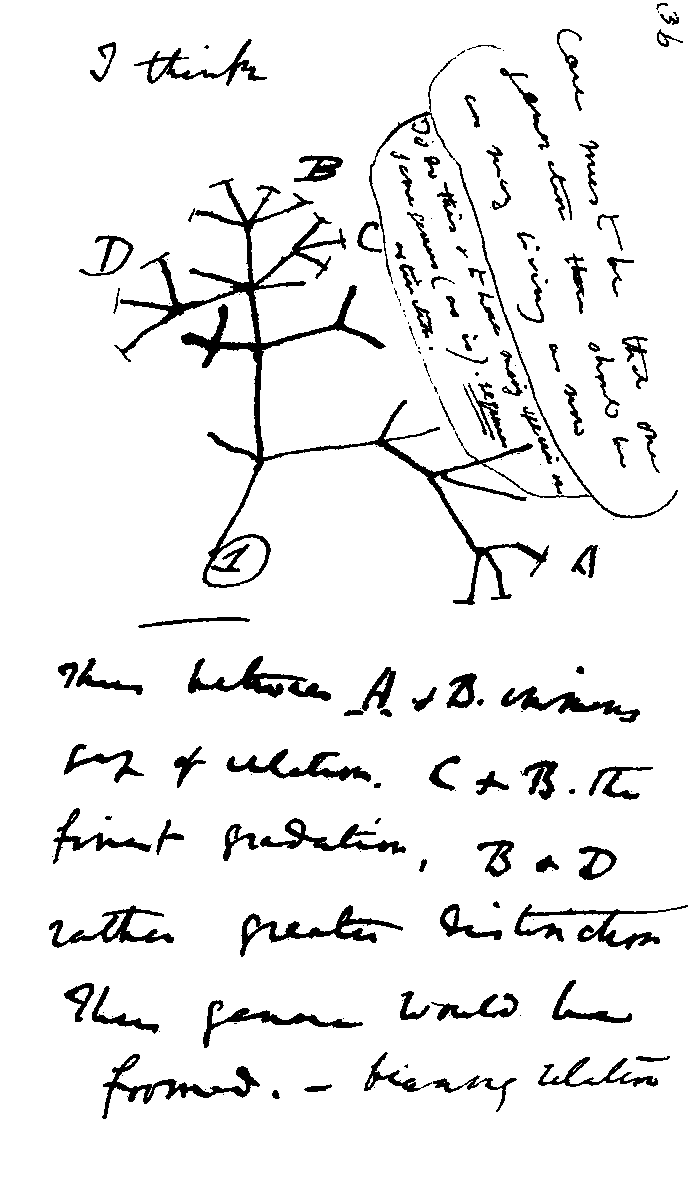 36
I think
Case must be that one
generation then should be
as many living as now
To do this & to have many species in
same genus (as is). requires
extinction.
B
C
D
A
1
Thus between A & B. immense
gap of relation. C & B. the
finest gradation, B & D
rather greater distinction
Thus genera would be
formed. — bearing relation